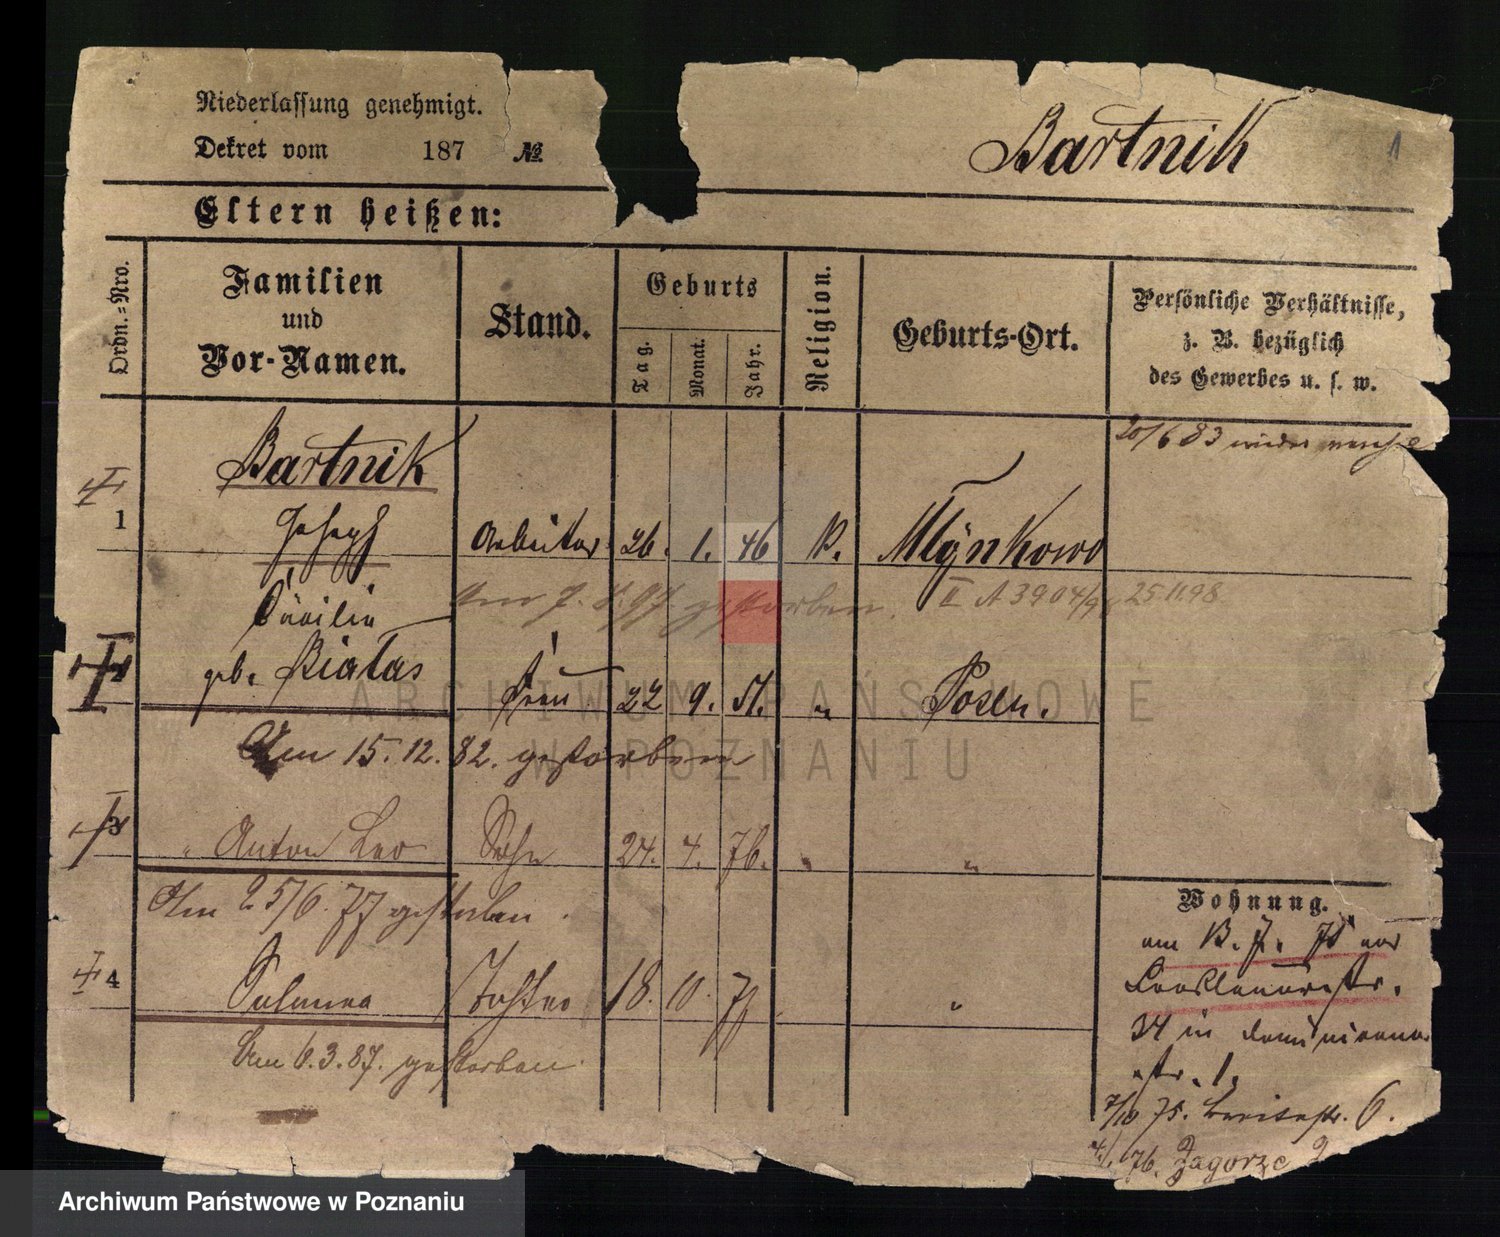 Niederlassung genehmigt.
Dekret vom 187 №
Bartnik
1
Eltern heißen:
Ordn.-Nro.
Familien
und
Vor-Namen.
Stand.
Geburts
Tag.
Monat.
Jahr.
Religion.
Geburts-Ort.
Persönliche Verhältnisse,
z. B. bezüglich
des Gewerbes u. s. w.
20/6 83
Bartnik
1 Joseph Arbeiter 26. 1. 46 K. Mlÿnkowo
Am 7. 8. 97 gestorben. II A 3904/98 25.11.98
Cäcilia
geb. Białas Frau 22 9. 51. " Posen.
Am 15.12.82. gestorben
3 " Anton Leo Sohn 24. 4. 76. " "
Am 25/6. 77 gestorben.
4 Salomea Tochter 18. 10. 77 "
Am 6.3.87. gestorben.
Wohnung.
am 13. 7. 75 aus
34 in Dominicaner
str. 1.
7/10 75. Breitestr. 6.
76. Zagorze 2
ARCHIWUM PAŃSTWOWE
W POZNANIU
Archiwum Państwowe w Poznaniu